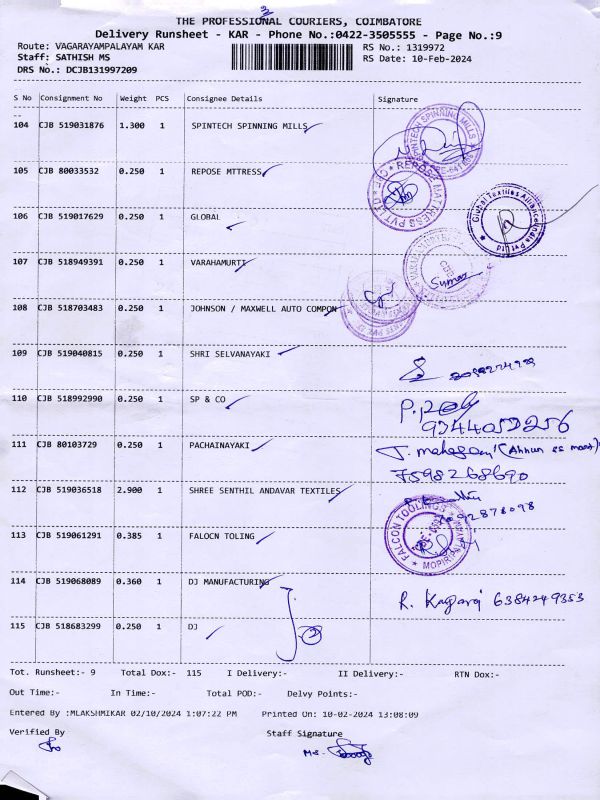 THE PROFESSIONAL COURIERS, COIMBATORE
Delivery Runsheet - KAR - Phone No.:0422-3505555 - Page No.:9
Route: VAGARAYAMPALAYAM KAR RS No.: 1319972
Staff: SATHISH MS RS Date: 10-Feb-2024
DRS No.: DCJB131997209
S No Consignment No Weight PCS Consignee Details Signature
104 CJB 519031876 1.300 1 SPINTECH SPINNING MILLS
SPINTECH SPINNING MILLS
105 CJB 80033532 0.250 1 REPOSE MTTRESS
REPOSE MATTRESS PVT LTD
106 CJB 519017629 0.250 1 GLOBAL
Global Textiles Alliance India Pvt Ltd
107 CJB 518949391 0.250 1 VARAHAMURTI
108 CJB 518703483 0.250 1 JOHNSON / MAXWELL AUTO COMPON
109 CJB 519040815 0.250 1 SHRI SELVANAYAKI
110 CJB 518992990 0.250 1 SP & CO
9344053256
111 CJB 80103729 0.250 1 PACHAINAYAKI
7598268690
112 CJB 519036518 2.900 1 SHREE SENTHIL ANDAVAR TEXTILES
113 CJB 519061291 0.385 1 FALOCN TOLING
FALCON TOOLINGS
114 CJB 519068089 0.360 1 DJ MANUFACTURING
6384249353
115 CJB 518683299 0.250 1 DJ
2
Tot. Runsheet:- 9 Total Dox:- 115 I Delivery:- II Delivery:- RTN Dox:-
Out Time:- In Time:- Total POD:- Delvy Points:-
Entered By :MLAKSHMIKAR 02/10/2024 1:07:22 PM Printed On: 10-02-2024 13:08:09
Verified By Staff Signature